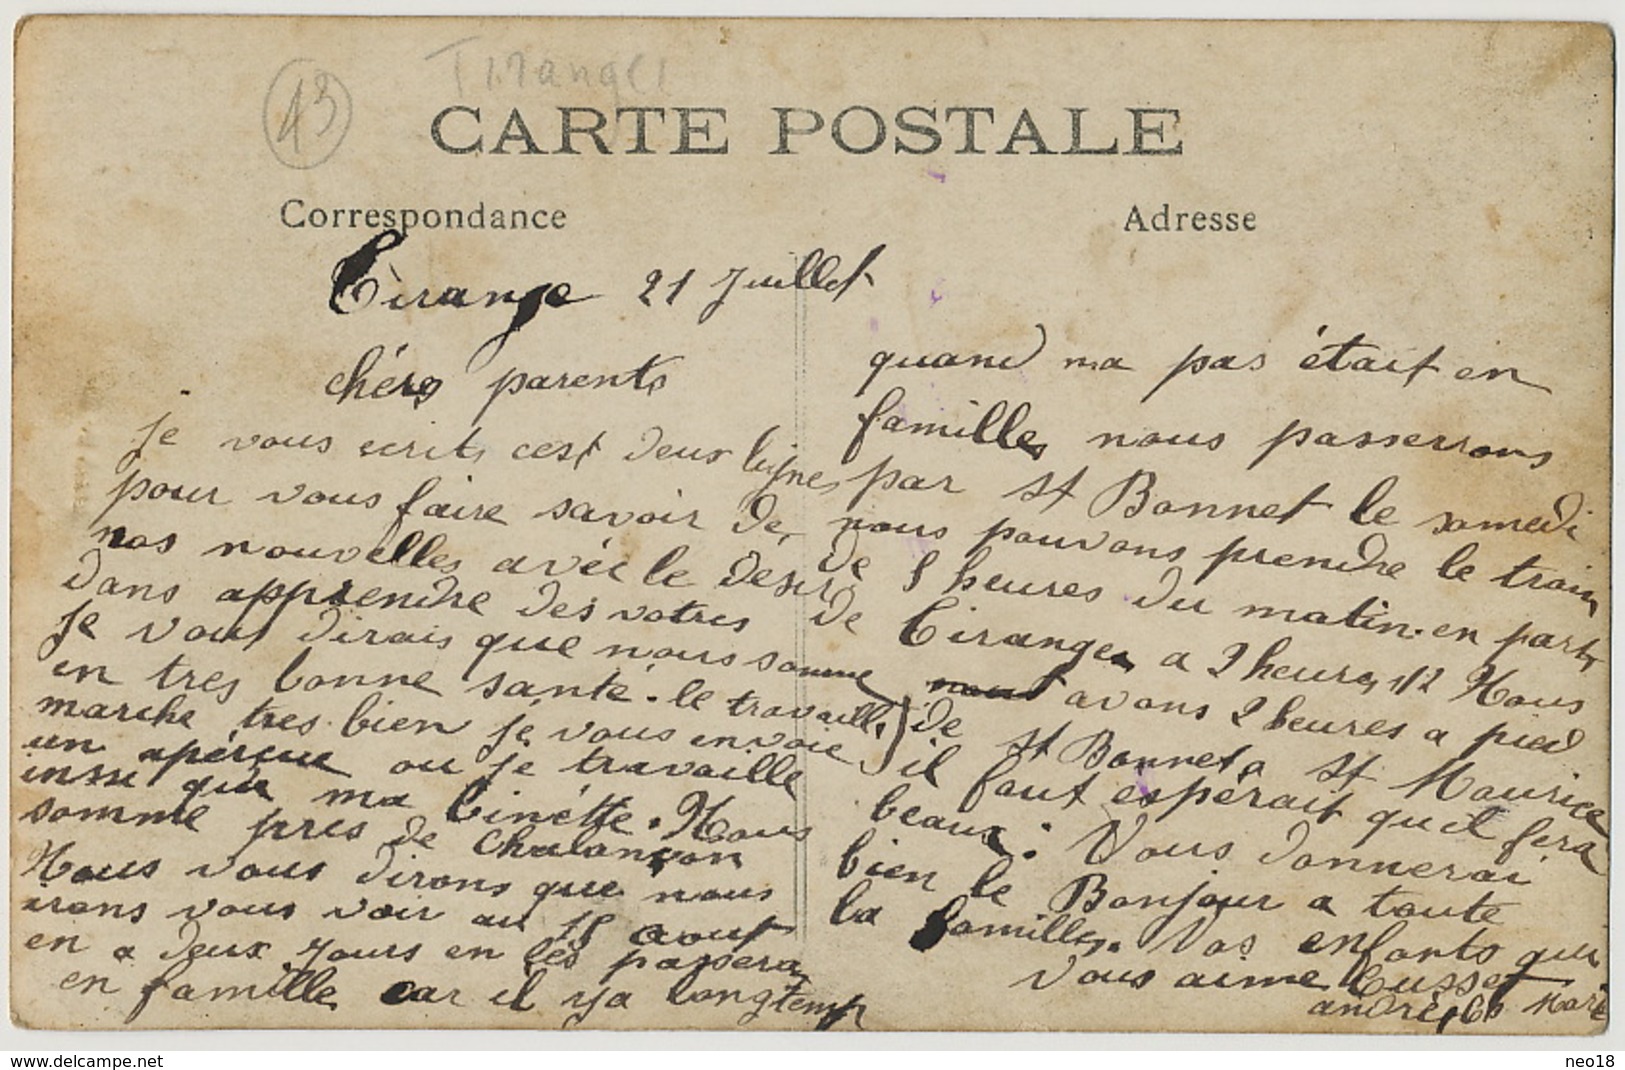 43 Tiranges
CARTE POSTALE
Correspondance
Adresse
Tirange 21 Juillet
chérs parents
je vous ecrits cest deux lignes
pour vous faire savoir de
nos nouvelles avéc le désire
dans apprendre des votres
je vous dirais que nous somme
en tres bonne santé. le travaille
marche tres bien je vous envoie
un apérçue ou je travaille
inssi que ma binétte. Nous
somme pres de Chalançon
Nous vous dirons que nous
irons vous voir au 15 aout
en a deux jours en les passera
en famille car il ya longtemp
quand ma pas était en
familles nous passerrons
par St Bonnet le samedi
nous pouvons prendre le train
de 8 heures du matin. en parts
de Tiranges a 2 heures 1/2 Nous
avons 2 heures a pied
de St Bonnet a St Maurice
il faut espérait qu'il fera
beaux: Vous donnerai
bien le Bonjour a toute
la familles. Vos enfants qui
vous aime Cusset
andré et Marie
www.delcampe.net
neo18